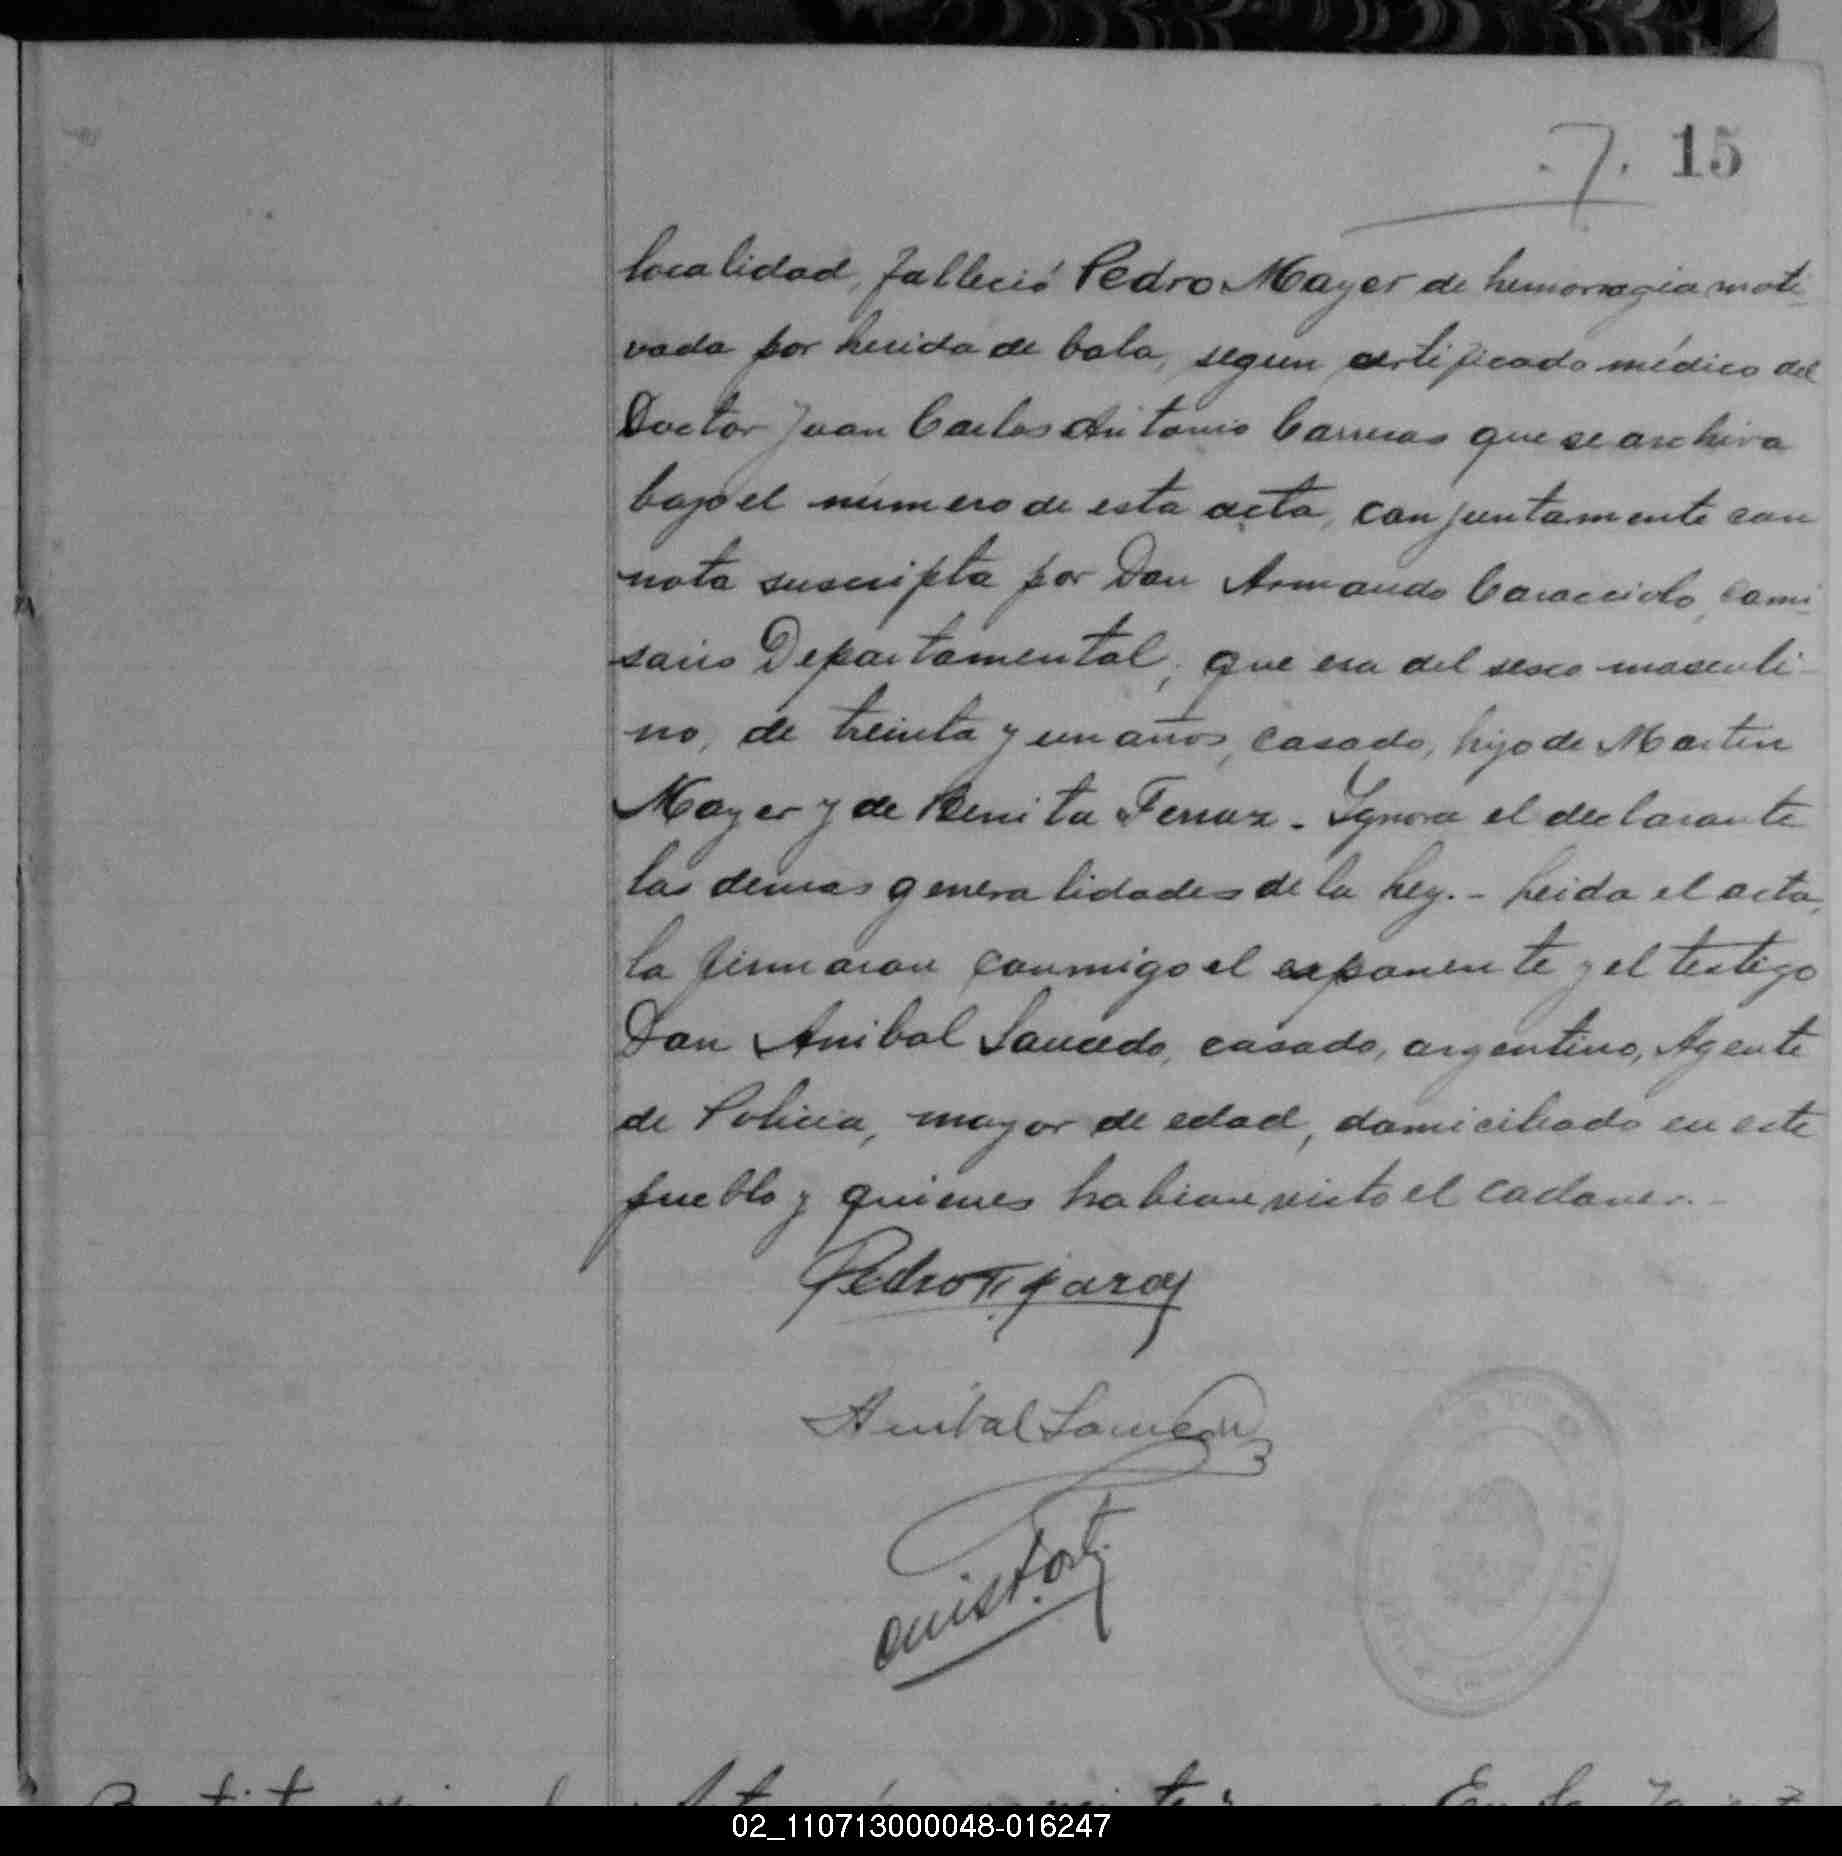 .7. 15
localidad, falleció Pedro Mayer de hemorragia moti-
vada por herida de bala, segun certificado médico del
Doctor Juan Carlos Antonio Carreras que se archiva
bajo el número de esta acta, conjuntamente con
nota suscripta por Don Armando Caracciolo, comi-
sario Departamental; que era del sexo masculi-
no, de treinta y un años, casado, hijo de Martin
Mayer y de Benita Ferraz. Ignora el declarante
las demas generalidades de la ley. - Leida el acta,
la firmaron conmigo el exponente y el testigo
Don Anibal Saucedo, casado, argentino, Agente
de Policia, mayor de edad, domiciliado en este
pueblo y quienes habian visto el cadaver. -
Pedro
Anibal Saucedo
02_110713000048-016247